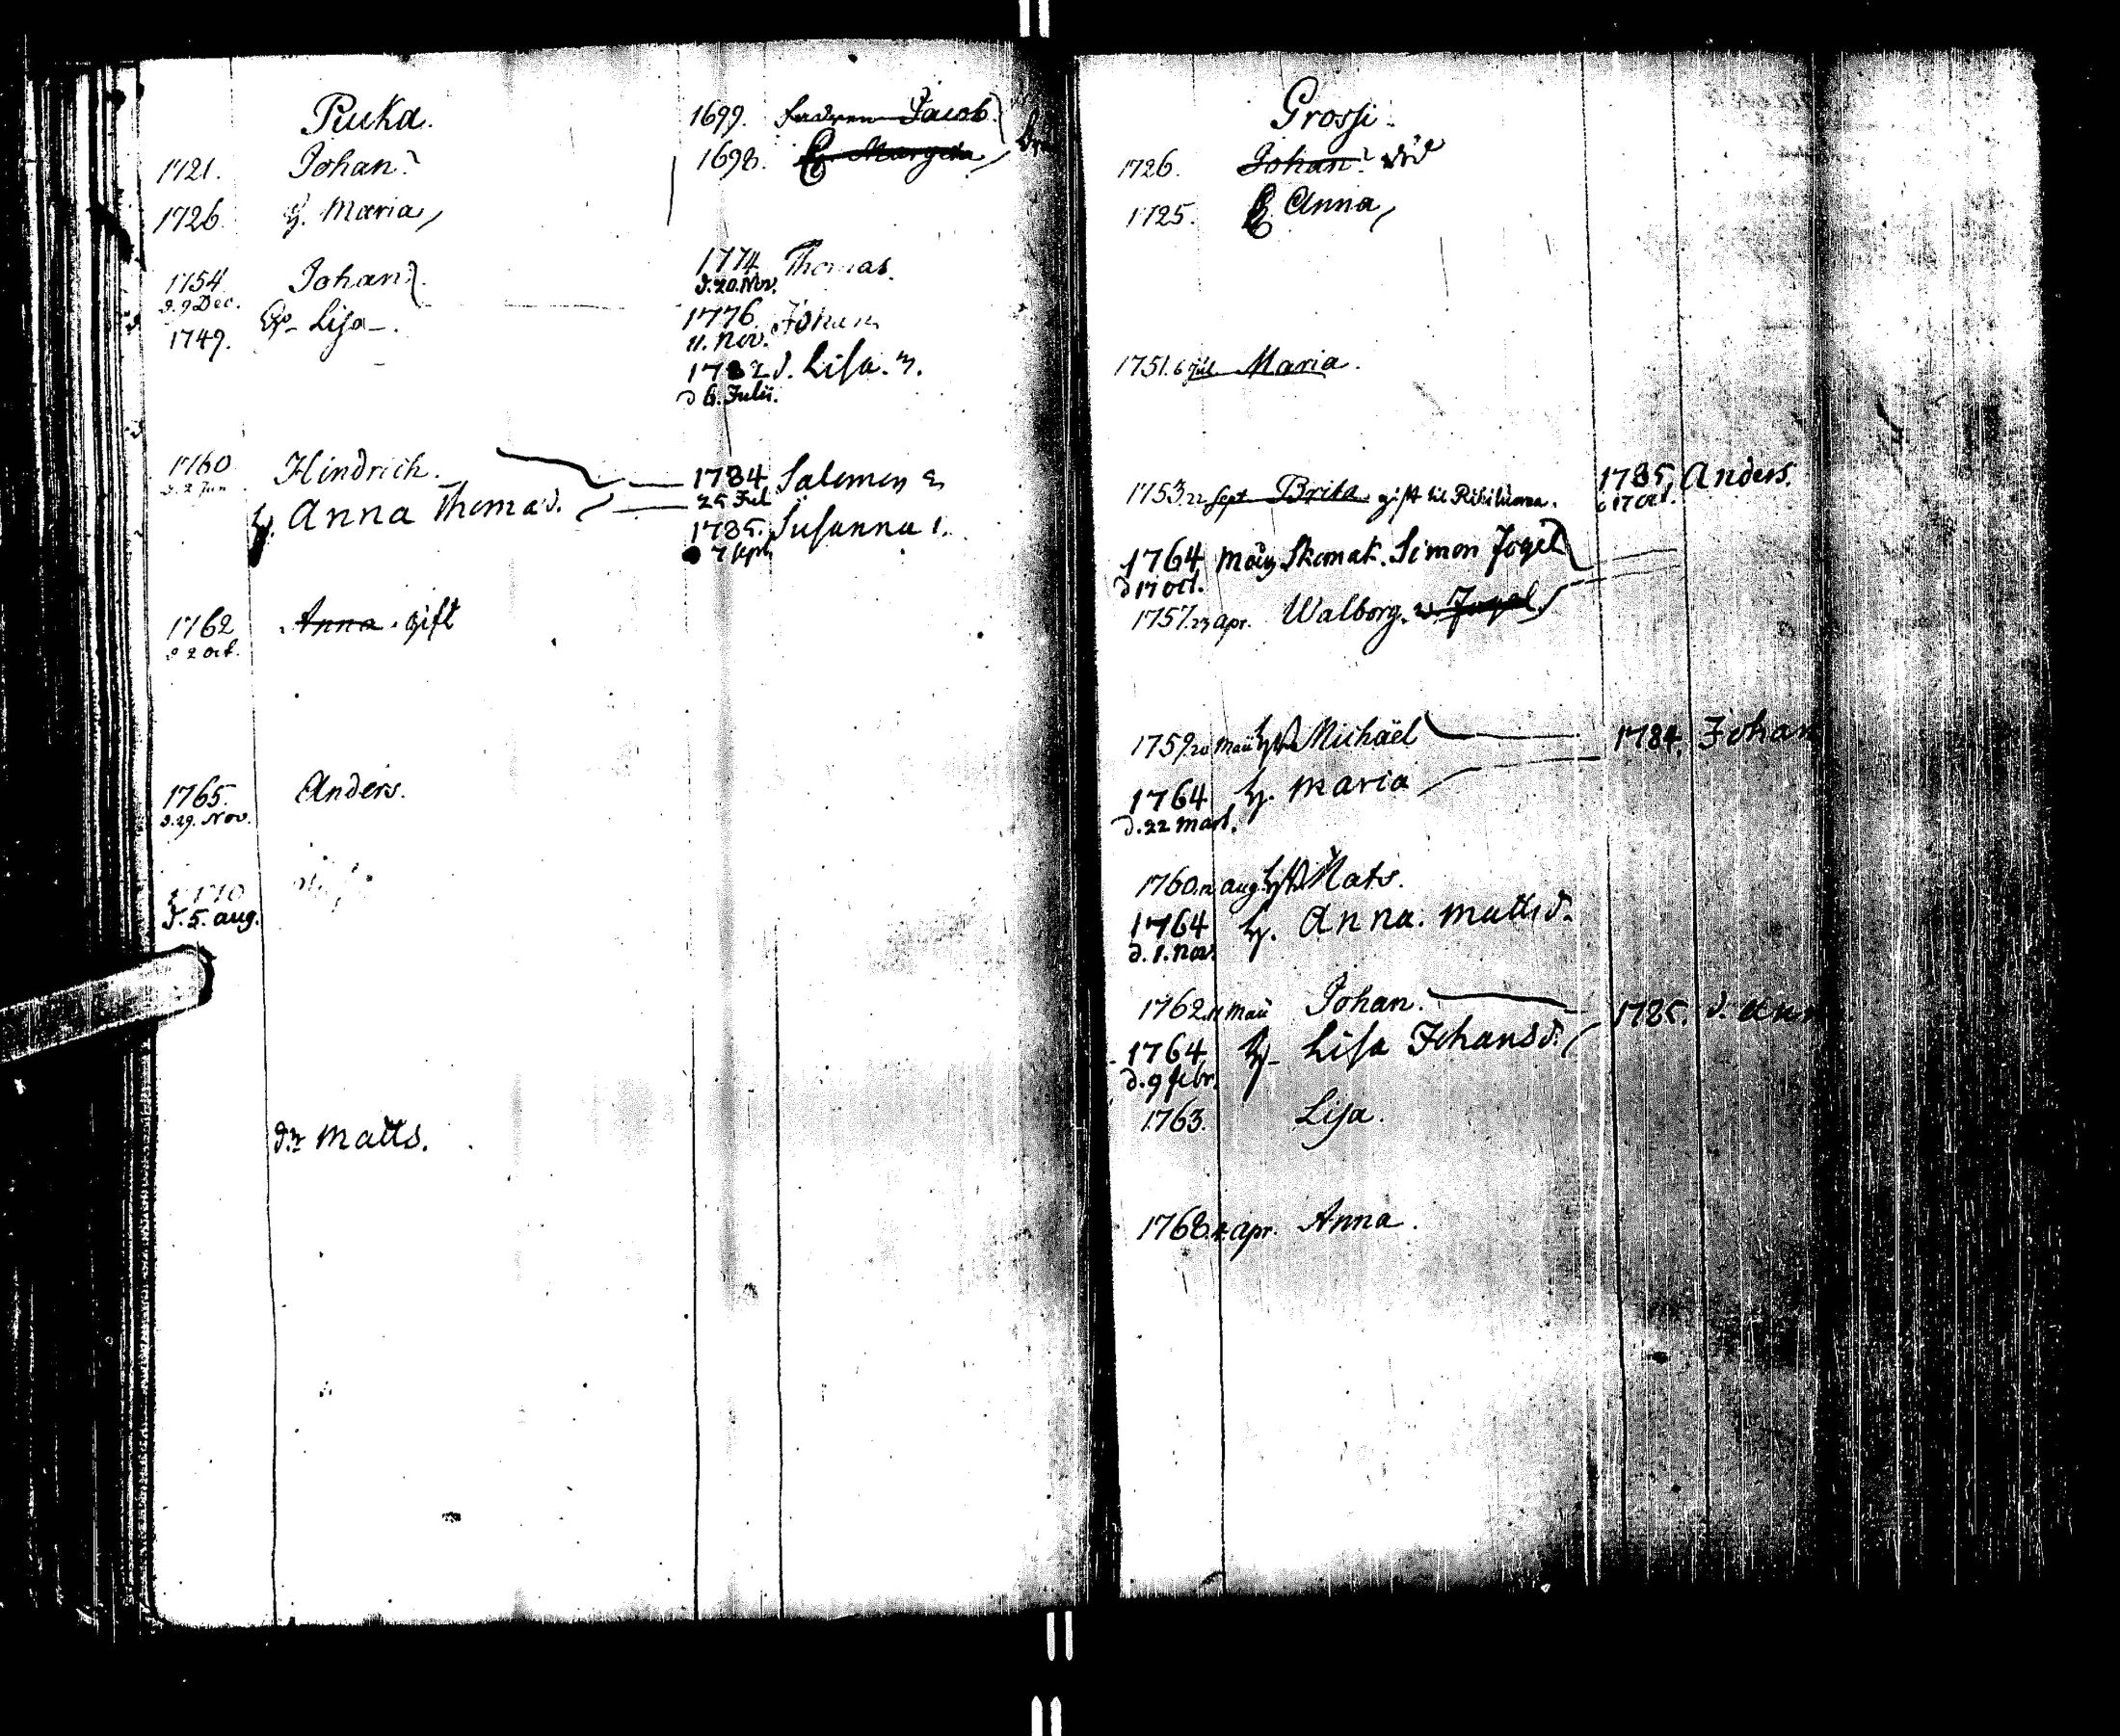 Pucka.
1721. Johan
1726. H. Maria
1699. fadren Jacob
1698. H. Margeta
1754 Johan
d. 9 Dec.
1749. H. Lisa
1774 Thomas.
d. 20. Nov.
1776. Johan
11. Nov.
1782 d. Lisa. 3.
d 6. Julii.
1760 Hindrich.
d. 2 Jun
H. Anna Thomasd.
1784 Salomon 2
25 Jul
1785. Susanna 1.
7 Sept
1762 Anna. gift
d 2 oct.
1765. Anders.
d. 29. Nov.
1770
d. 5. aug.
Matts.
Grossi.
1726. Johan död
1725. H. Anna
1751. 6 Jul. Maria.
1753. 22 Sept Brita gift til
1785. Anders.
d 17 oct.
1764 måg Skomak. Simon Fogel
d 17 oct.
1757. 23 apr. Walborg.
1759. 20 Maii Michaël
1784. Johan
1764 H. Maria
d. 22 Mart.
1760. 12 aug Mats.
1764 H. Anna. Mattsd.
d. 1. Nov.
1762. 11 Maii Johan.
1785. d. Ann
1764 H. Lisa Johansd.
d. 9 febr.
1763. Lisa.
1768. 4 apr. Anna.